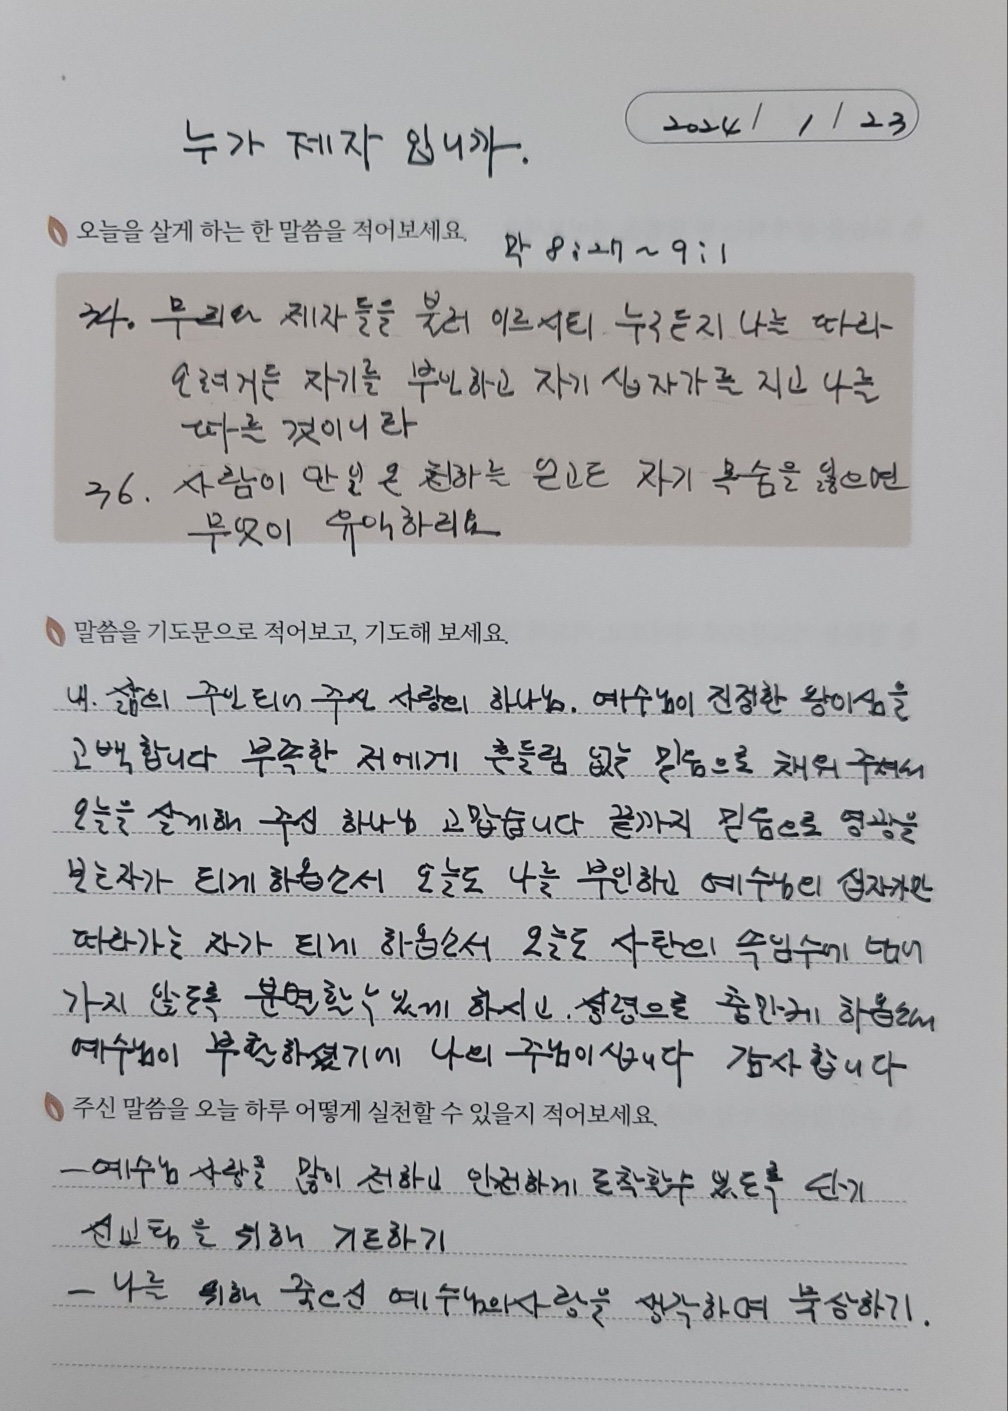 2024 / 1 / 23
누가 제자 입니까.
오늘을 살게 하는 한 말씀을 적어보세요.
막 8:27~9:1
34. 무리와 제자들을 불러 이르시되 누구든지 나를 따라
오려거든 자기를 부인하고 자기 십자가를 지고 나를
따를 것이니라
36. 사람이 만일 온 천하를 얻고도 자기 목숨을 잃으면
무엇이 유익하리요
말씀을 기도문으로 적어보고, 기도해 보세요.
내. 삶의 주인 되어 주신 사랑의 하나님. 예수님이 진정한 왕이심을
고백합니다 부족한 저에게 흔들림 없는 믿음으로 채워 주셔서
오늘을 살게해 주신 하나님 고맙습니다 끝까지 믿음으로 영광을
보는자가 되게 하옵소서 오늘도 나를 부인하고 예수님의 십자가만
따라가는 자가 되게 하옵소서 오늘도 사탄의 속임수에 넘어
가지 않도록 분별할수 있게 하시고. 성령으로 충만케 하옵소서
예수님이 부활하셨기에 나의 주님이십니다 감사합니다
주신 말씀을 오늘 하루 어떻게 실천할 수 있을지 적어보세요.
- 예수님 사랑을 많이 전하고 안전하게 도착할수 있도록 단기
선교팀을 위해 기도하기
- 나를 위해 죽으신 예수님의사랑을 생각하며 묵상하기.